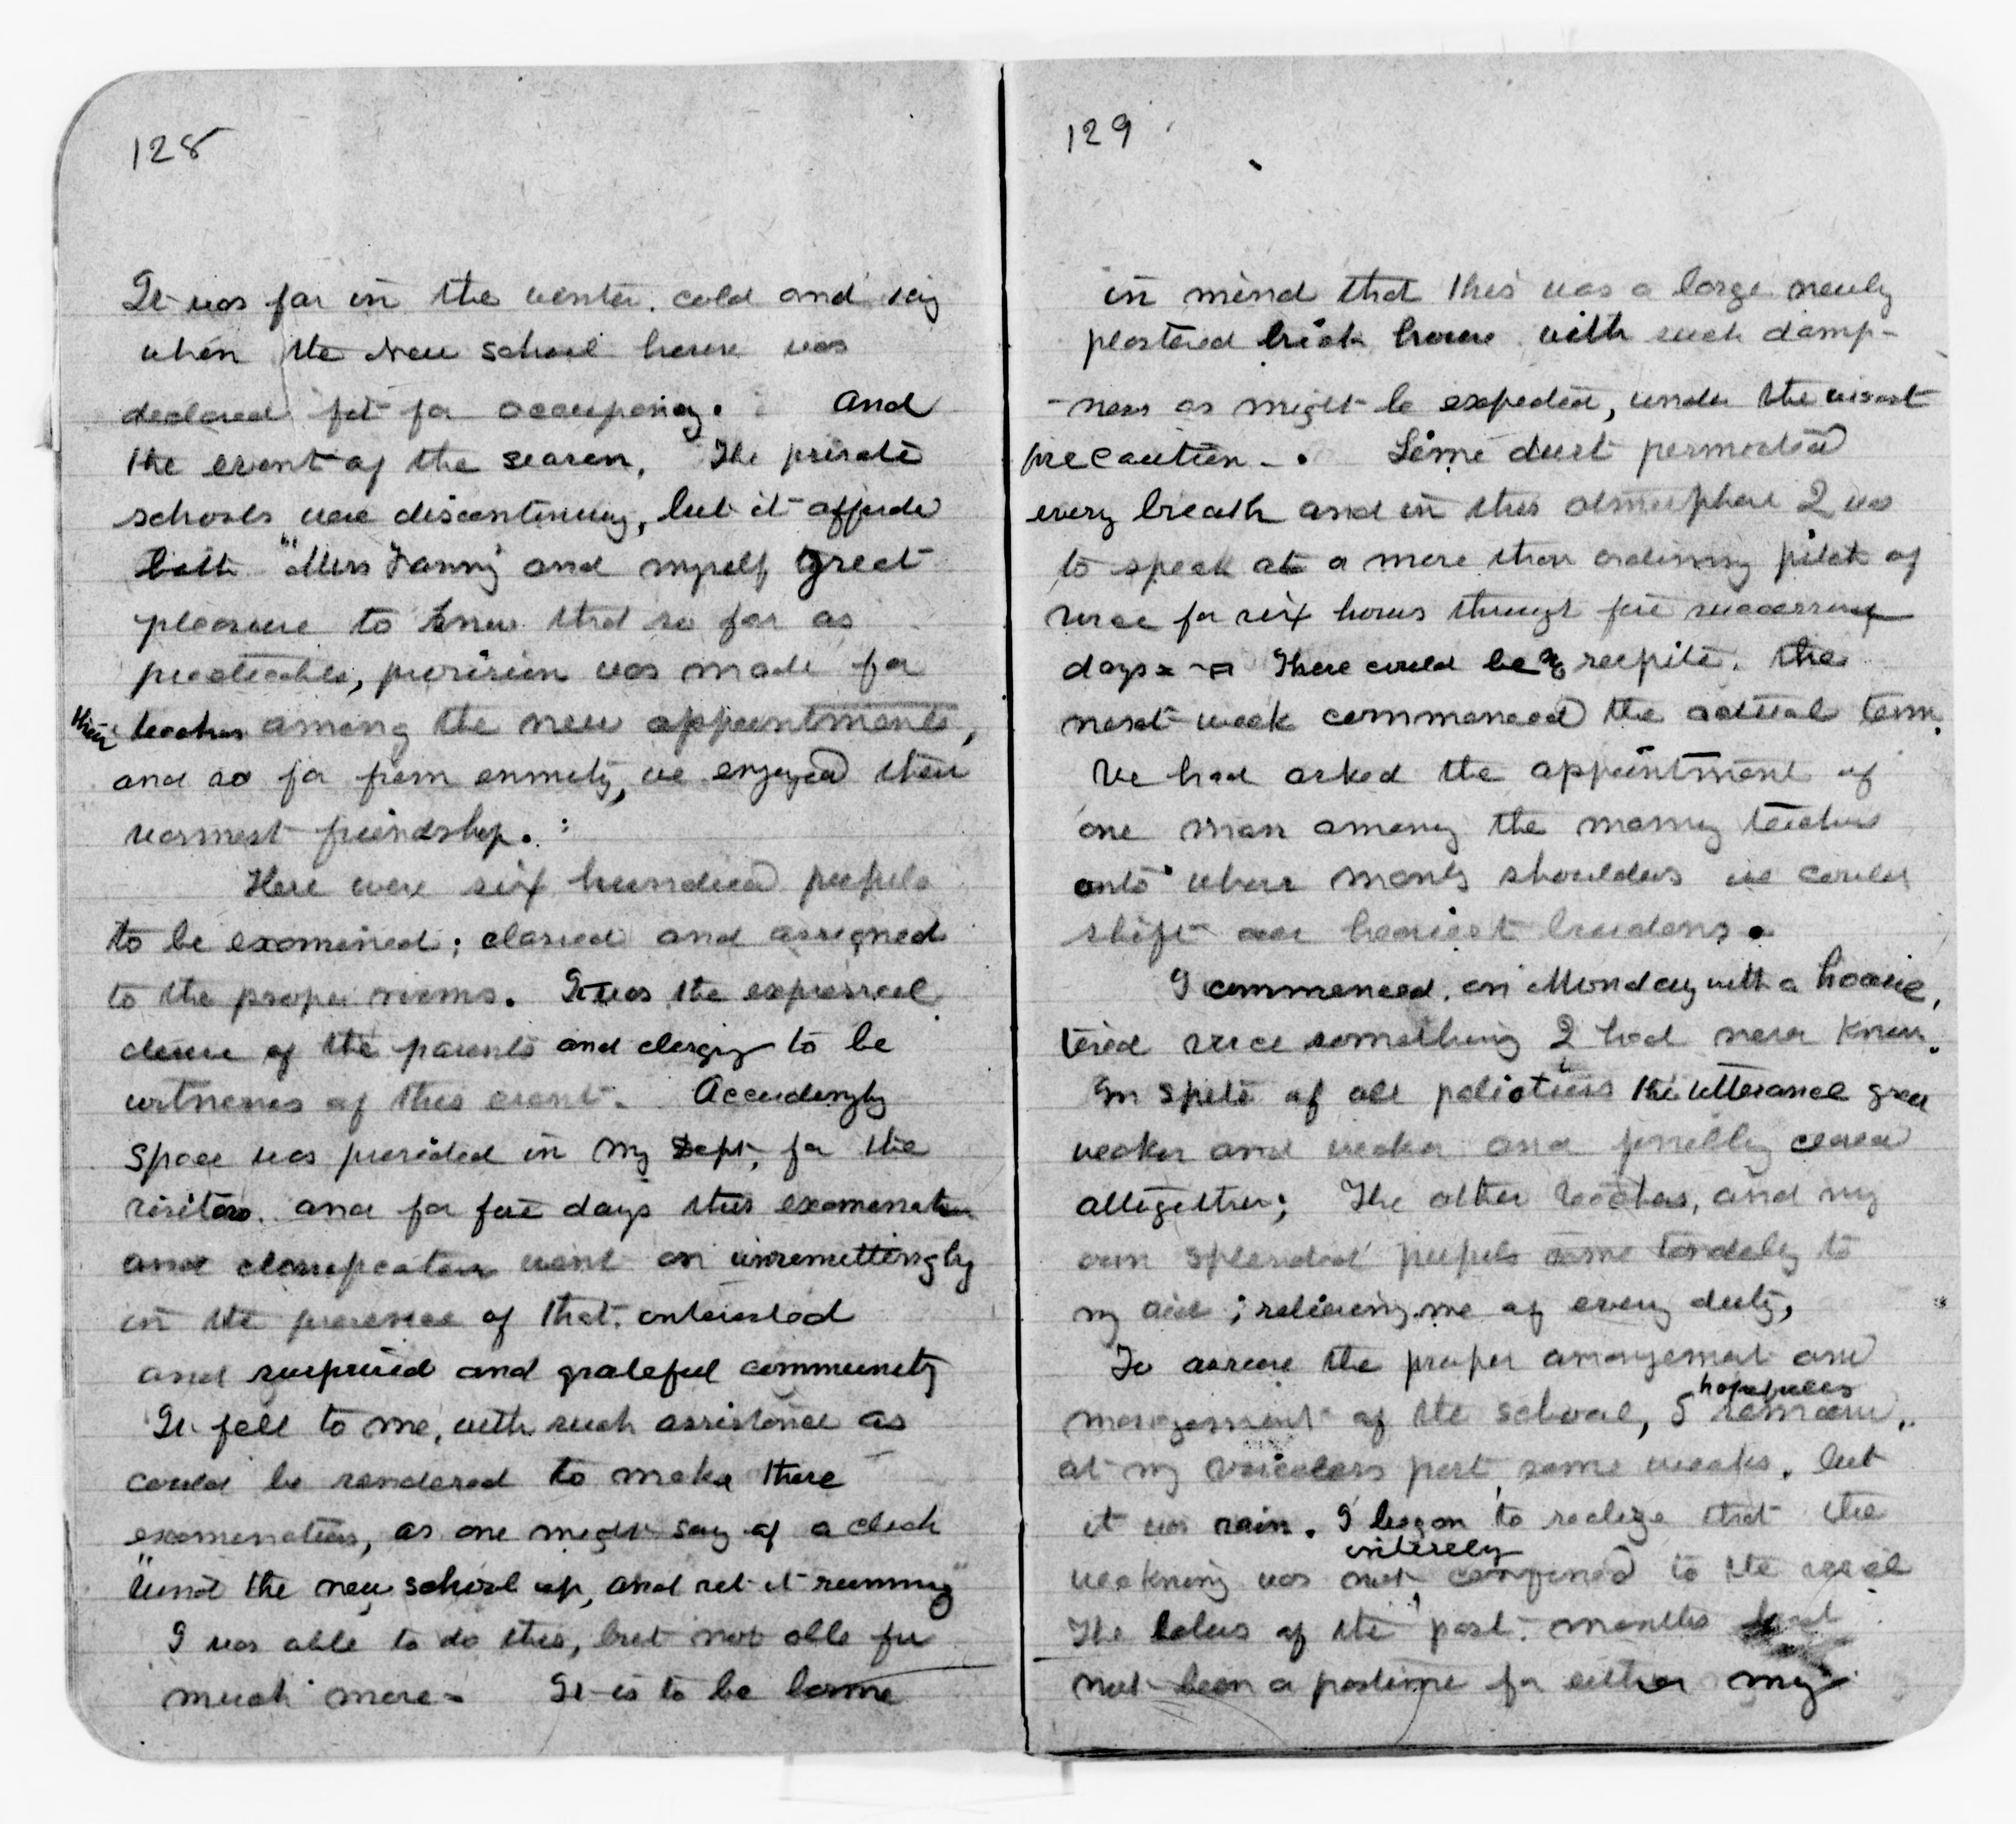 128
It was far in the winter. cold and icy
when the New school house was
declared fit for occupancy. and
the event of the season. The private
schools were discontinued, but it afforded
both "Miss Fanny" and myself great
pleasure to know that so far as
practicable, provision was made for
their teachers among the new appointments,
and so far from enmity, we enjoyed their
warmest friendship.
Here were six hundred pupils
to be examined; classed and assigned
to the proper rooms. It was the expressed
desire of the parents and clergy to be
witnesses of this event. Accordingly
space was provided in my Dept. for the
visitors. and for five days this examination
and classification went on unremittingly
in the presence of that interested
and surprised and grateful community
It fell to me, with such assistance as
could be rendered to make these
examinations, as one might say of a clock
"wind the new school up, and set it running"
I was able to do this, but not able for
much more - It is to be borne
129
in mind that this was a large newly
plastered brick house with such damp-
-ness as might be expected, under the wisest
precaution -. Lime dust permeated
every breath and in this atmosphere I was
to speak at a more than ordinary pitch of
voice for six hours through five successive
days - There could be no respite. the
next week commenced the actual term.
We had asked the appointment of
one man among the many teachers
onto whose manly shoulders we could
shift our heaviest burdens.
I commenced, on Monday with a hoarse,
tired voice something I had never known.
In spite of all paliatives the utterance grew
weaker and weaker and finally ceased
altogether; The other teachers, and my
own splendid pupils came tenderly to
my aid; relieving me of every duty,
To assure the proper arrangement and
management of the school, I hopefully remained
at my voiceless post some weeks, but
it was vain. I began to realize that the
weakning was not entirely confined to the vocal
The labors of the past months had
not been a pastime for either my